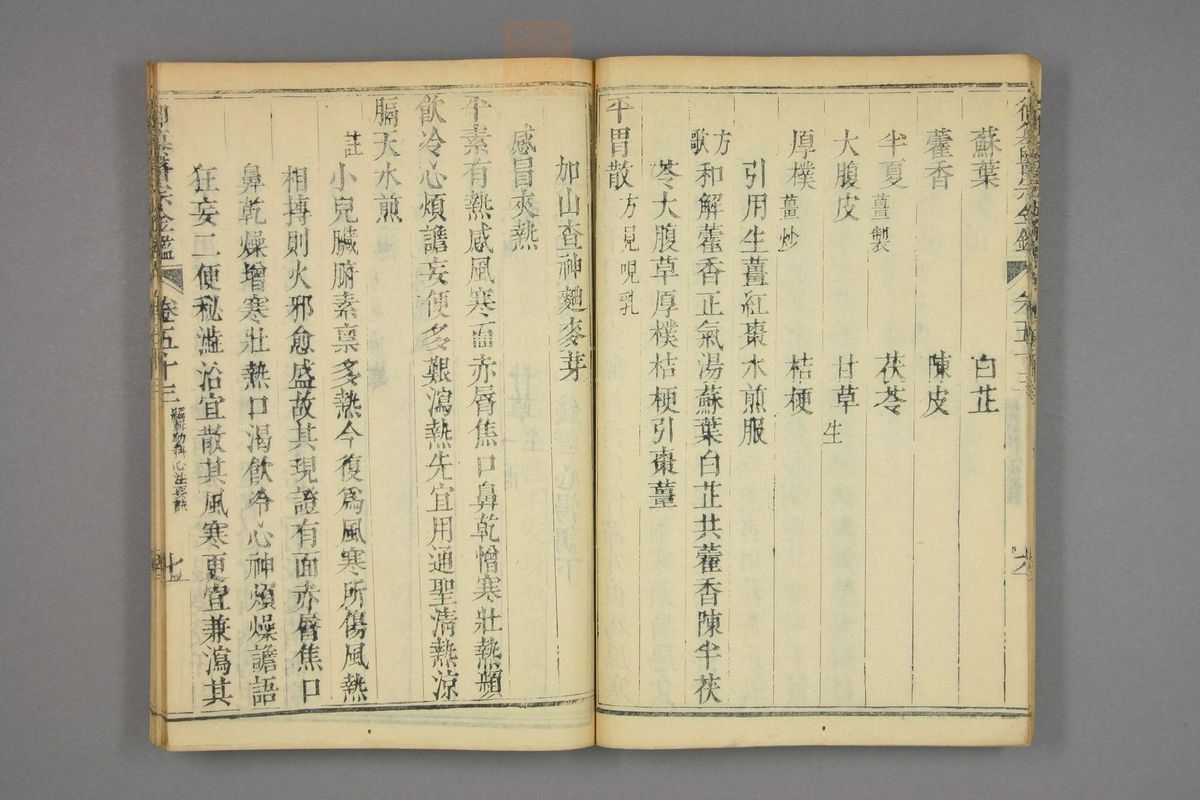 蘇葉 白芷
藿香 陳皮
半夏薑製 茯苓
大腹皮 甘草生
厚樸薑炒 桔梗
引用生薑紅棗水煎服
方歌和解藿香正氣湯蘇葉白芷共藿香陳半茯
苓大腹草厚樸桔梗引棗薑
平胃散方見呪乳
加山查神麯麥芽
感冒夾熱
平素有熱感風寒面赤脣焦口鼻乾憎寒壯熱頻
飲冷心煩譫妄便多艱瀉熱先宜用通聖清熱涼
膈天水煎
註小兒臟腑素禀多熱今復爲風寒所傷風熱
相摶則火邪愈盛故其現證有面赤脣焦口
鼻乾燥增寒壯熱口渴飲冷心神煩燥譫語
狂妄二便秘澁治宜散其風寒更宜兼瀉其
御纂醫宗金鑑 卷五十三 編輯幼科心法要訣 七